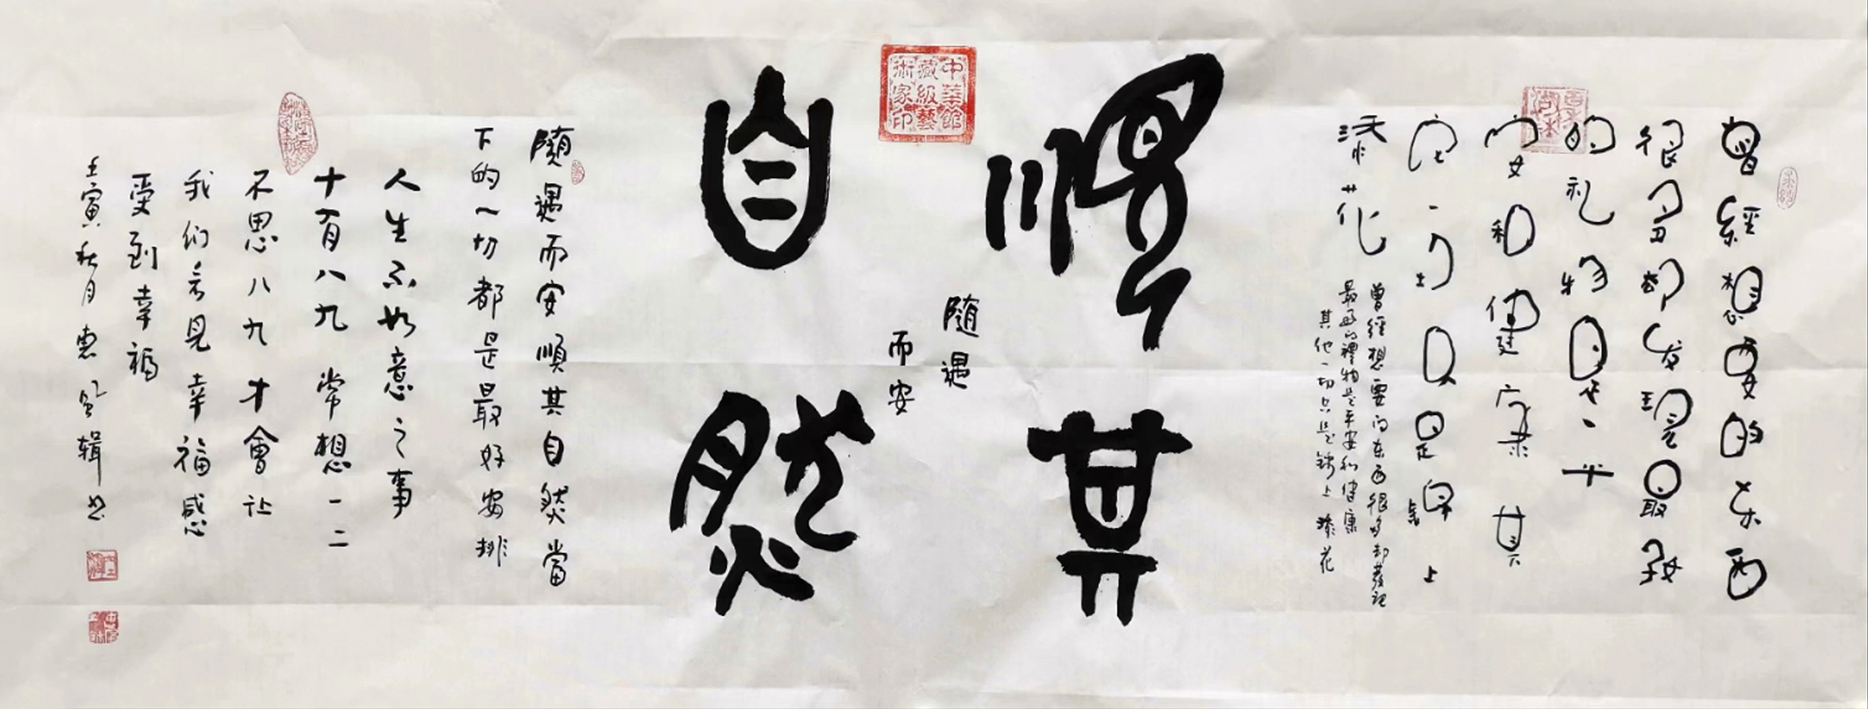 曾經想要的东西
很多却发现最好
的礼物是平
安和健康其
它一切只是锦上
添花
曾經想要的东西很多却發現
最好的禮物是平安和健康
其他一切只是錦上添花
順其
隨遇
而安
中華館
藏級藝
術家印
自然
隨遇而安順其自然當
下的一切都是最好安排
人生不如意之事
十有八九常想一二
不思八九才會让
我们看見幸福感
受到幸福
壬寅秋月惠风辑书